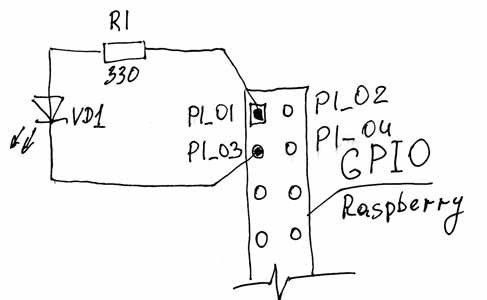 R1
330
VD1
P1_01
P1_02
P1_03
P1_04
GPIO
Raspberry